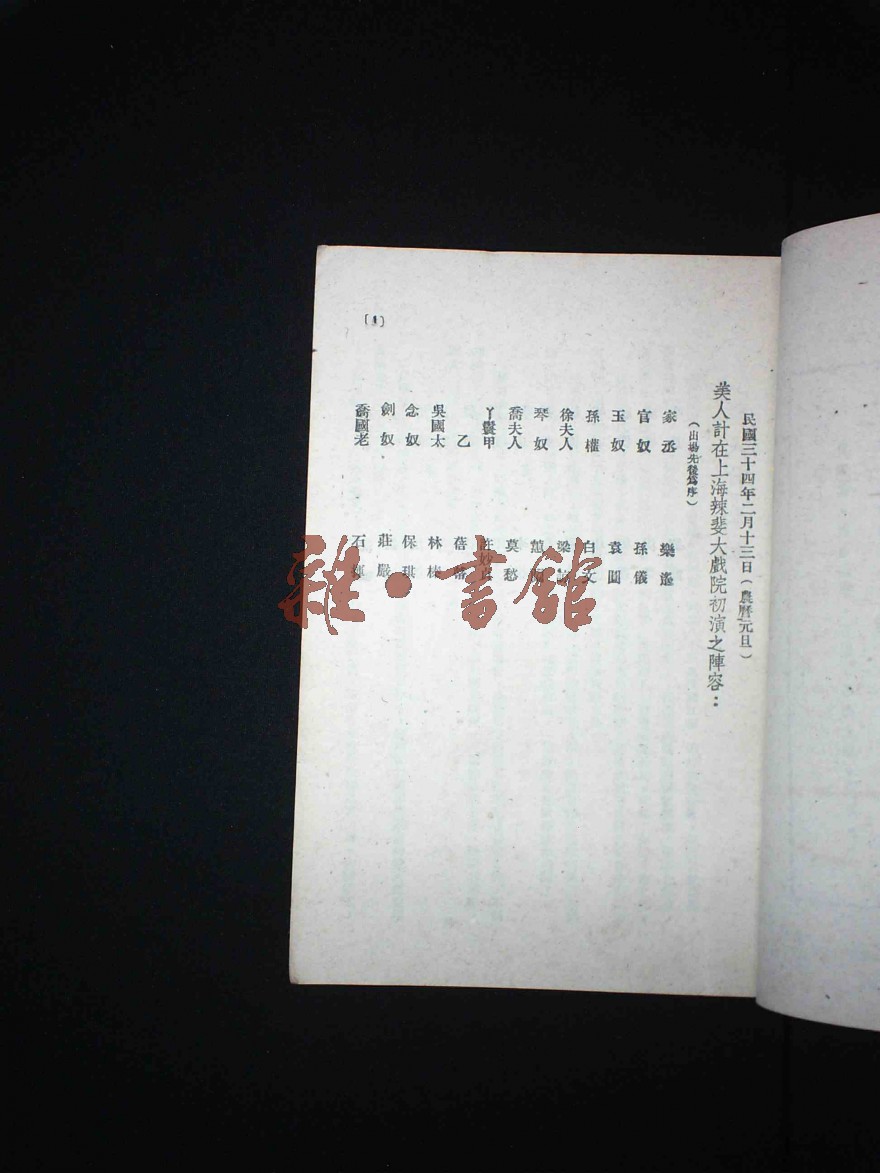 民國三十四年二月十三日(農曆元旦)
美人計在上海辣斐大戲院初演之陣容:
(出場先後為序)
家丞 樂遙
官奴 孫儀
玉奴 袁圓
孫權 白文
徐夫人 梁
琴奴
喬夫人 莫愁
丫鬟甲 許妙貞
乙 蓓蕾
吳國太 林榛
念奴 保琪
劍奴 莊嚴
喬國老 石
[1]
雜·書館